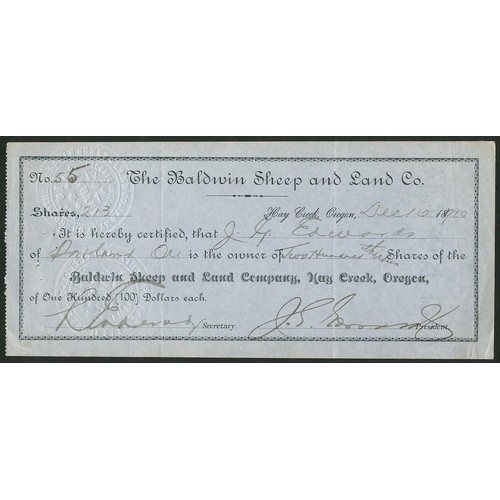 No. 55 The Baldwin Sheep and Land Co.
Shares, 213 Hay Creek, Oregon, Dec 10 1910
It is hereby certified, that J. G. Edwards
of Portland Ore is the owner of Two Hundred thirteen Shares of the
Baldwin Sheep and Land Company, Hay Creek, Oregon,
of One Hundred (100) Dollars each.
Secretary. President.